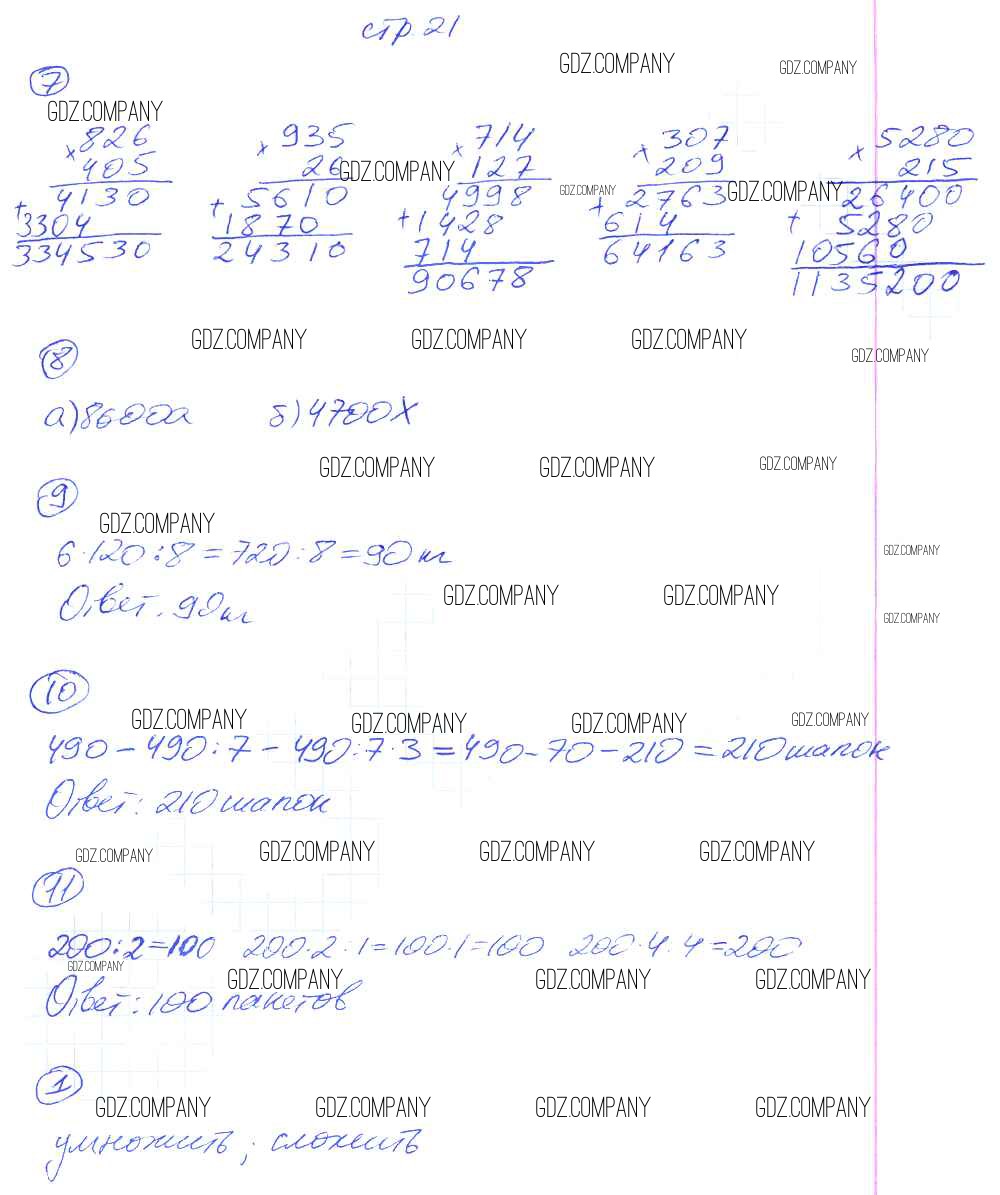 стр. 21
GDZ.COMPANY GDZ.COMPANY
7
GDZ.COMPANY
×826 ×935 ×714 ×307 ×5280
405 26 127 209 215
GDZ.COMPANY GDZ.COMPANY GDZ.COMPANY
4130 + 5610 4998 + 2763 26400
+ 3304 1870 + 1428 614 + 5280
334530 24310 714 64163 10560
90678 1135200
GDZ.COMPANY GDZ.COMPANY GDZ.COMPANY GDZ.COMPANY
8
а) 8600а б) 4700х
GDZ.COMPANY GDZ.COMPANY GDZ.COMPANY
9
GDZ.COMPANY
6·120:8=720:8=90 кг
GDZ.COMPANY
Ответ. 90 кг
GDZ.COMPANY GDZ.COMPANY GDZ.COMPANY
10
GDZ.COMPANY GDZ.COMPANY GDZ.COMPANY GDZ.COMPANY
490-490:7-490:7·3=490-70-210=210 шапок
Ответ: 210 шапок
GDZ.COMPANY GDZ.COMPANY GDZ.COMPANY GDZ.COMPANY
11
200:2=100 200·2·1=100·1=100 200·4·4=200
GDZ.COMPANY GDZ.COMPANY GDZ.COMPANY GDZ.COMPANY
Ответ: 100 пакетов
1
GDZ.COMPANY GDZ.COMPANY GDZ.COMPANY GDZ.COMPANY
умножить; сложить